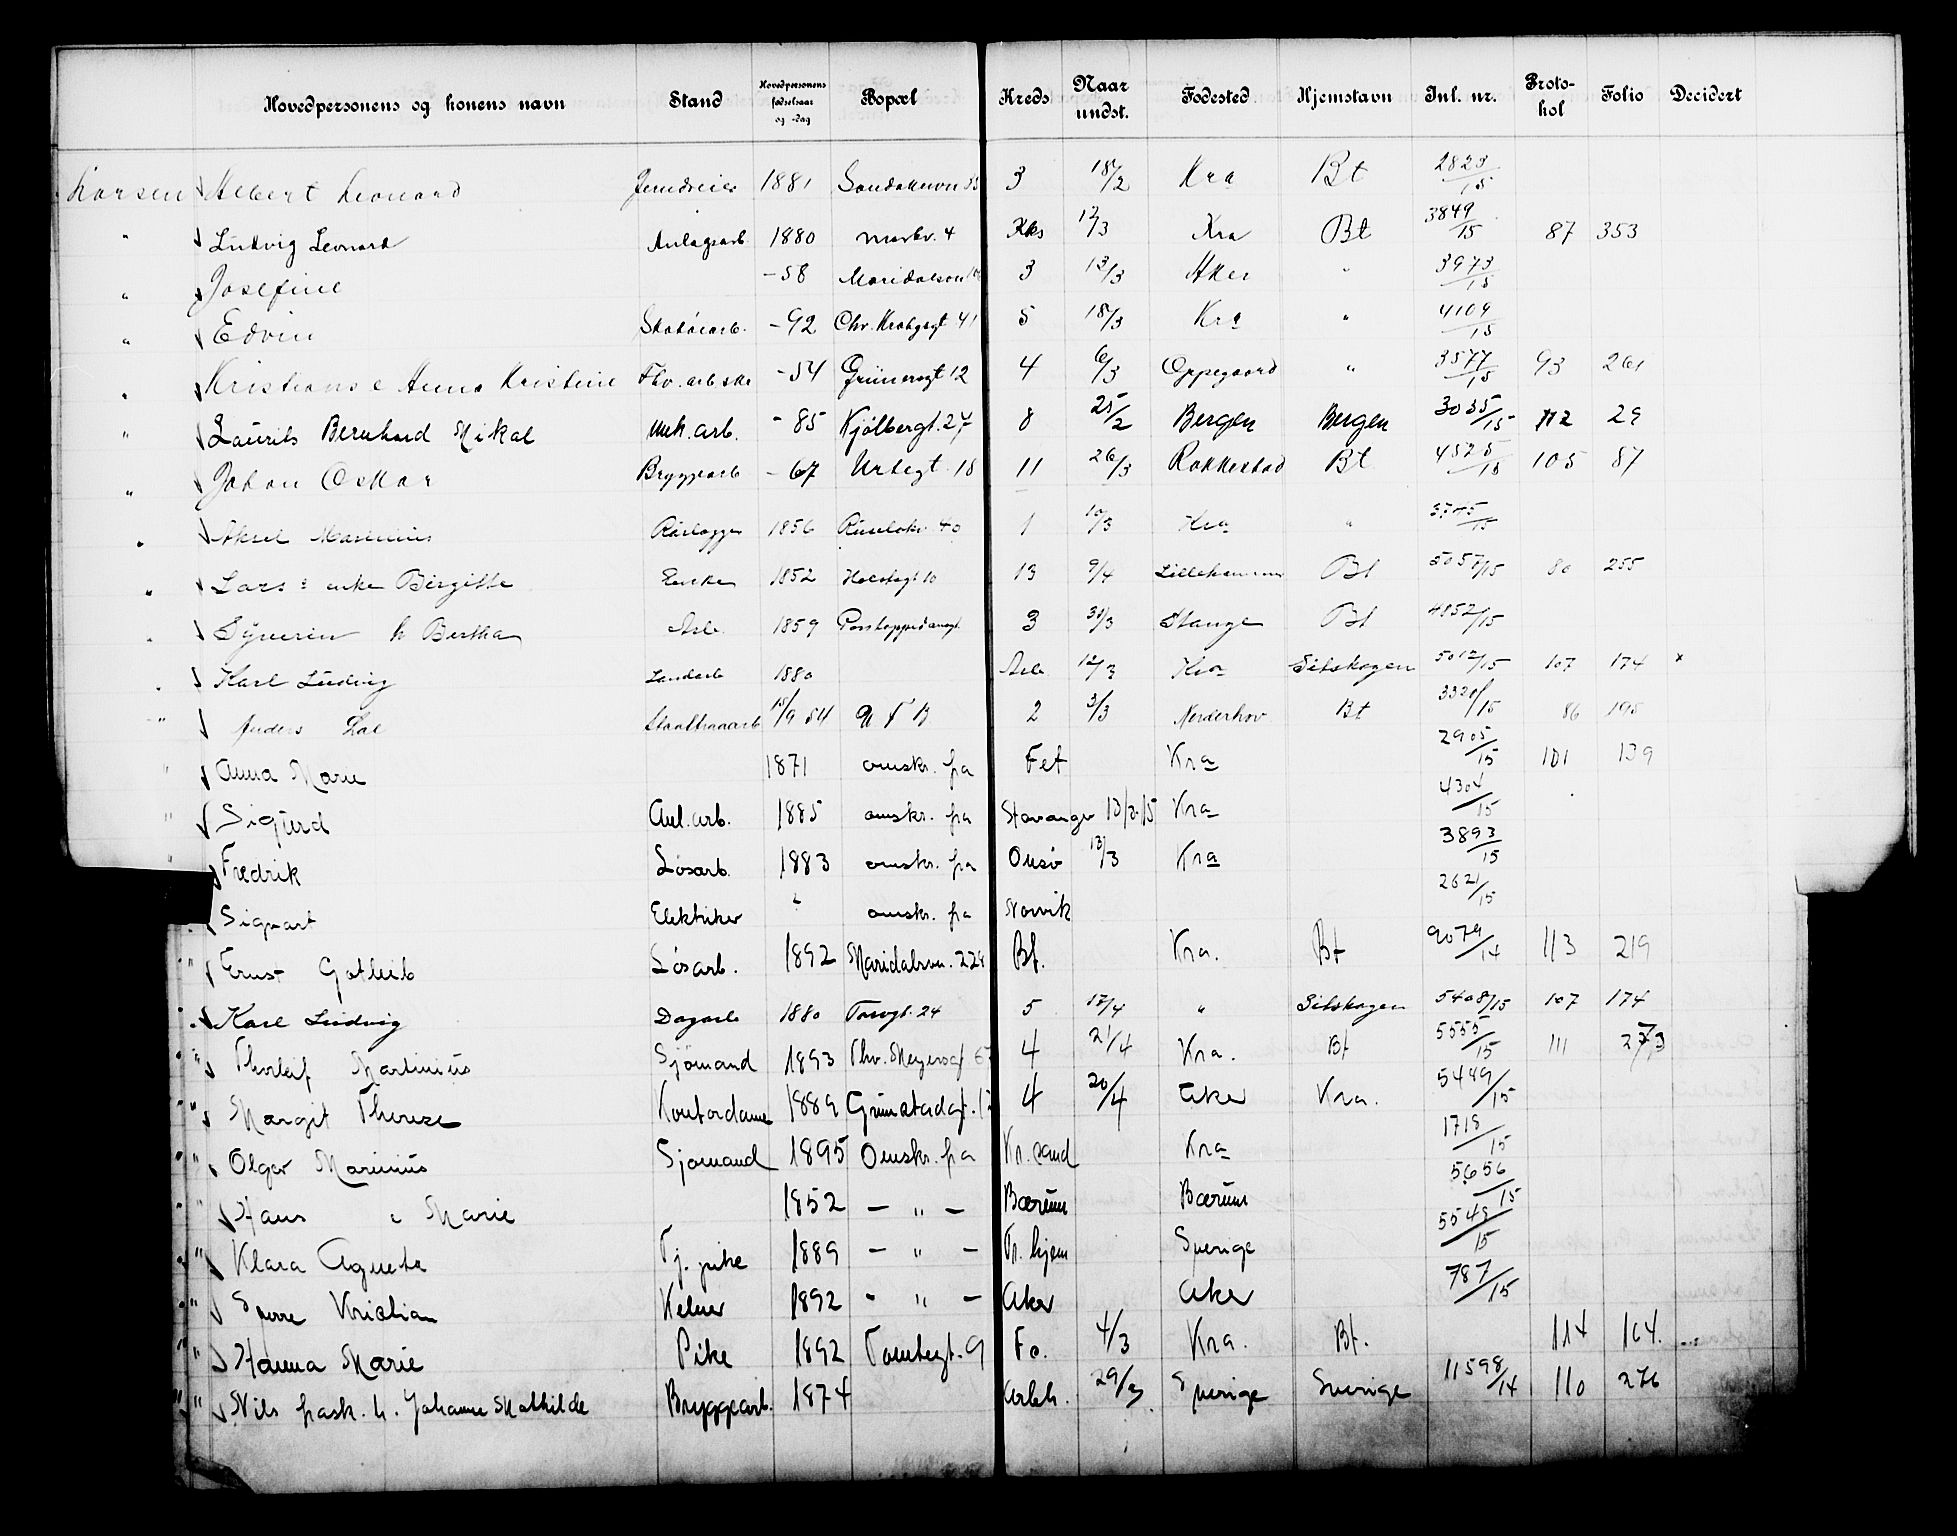 Hovedpersonens og konens navn Stand Hovedpersonens fødselsaar og -dag Bopæl Kreds Naar undst. Fødested Hjemstavn Inl. nr. Proto-kol Folio Decidert
Larsen Albert Leonard 1881 3 18/2 Kra Bt 2823/15
" Ludvig Leonard Anlægsarb. 1880 Markv. 4 Kks 12/3 Kra Bt 3849/15 87 353
" Josefine -58 3 13/3 Aker " 3973/15
" Edvin Skotøiarb. -92 Chr. Krohgsgt 41 5 18/3 Kra " 4109/15
" Kristians e Anna Kristine -54 Grünersgt 12 4 6/3 Oppegaard " 3577/15 93 261
" Laurits Bernhard Mikal mek. arb. -85 Kjølbergt. 27 8 25/2 Bergen Bergen 3035/15 112 29
" Johan Oskar Bryggearb -67 Urtegt 18 11 26/3 Rakkestad Bt 4525/15 105 87
" Aksel Martinius Rørlægger 1856 Ruseløkv. 40 1 10/3 Kra " 15
" Lars : enke Birgitte Enke 1852 Holstsgt 10 13 9/4 Lillehammer Bt 5057/15 80 255
" Syverin h Bertha Arb. 1859 3 30/3 Stange Bt 4852/15
" Karl Ludvig Landarb 1880 Arb 12/3 Kra Setskogen 5012/15 107 174 x
" Anders 15/9 54 U F B 2 3/3 Norderhov Bt 3320/15 86 195
" Anna Marie 1871 omskr. fra Fet Kra 2905/15 101 139
" Sigurd Anl. arb. 1885 omskr. fra Stavanger 13/3 15 Kra 4304/15
" Fredrik Løsarb. 1883 omskr. fra Onsø 13/3 Kra 3893/15
Sigvart Elektriker omskr. fra Narvik 2621/15
" Ernst Gotlieb Løsarb. 1892 Maridalsvn. 228 Bt. Kra. Bt 9079/14 113 219
" Karl Ludvig Dagarb 1880 Torvgt. 24 5 17/4 " Setskogen 5408/15 107 174
" Thorleif Martinius Sjømand 1893 Thv. Meyersgt 4 21/4 Kra. Bt 5555/15 111 273
" Margit Therese Kontordame 1889 4 20/4 Aker Kra. 5489/15
" Olger Marinius Sjømand 1895 Omskr. fra Kr. sand Kra 1718/15
" Hans e Marie 1852 — " — Bærum Bærum 5656/15
" Klara Agneta Tj. pike 1889 — " — Tr. hjem Sverige 5548/15
" Sverre Kristian Kelner 1892 — " — Aker Aker 787/15
" Hanna Marie Pike 1892 Tomtegt. 9 Fo. 4/3 Kra. Bt. 114 164.
" Nils frask. h. Johanne Mathilde Bryggearb. 1874 Arbh. 29/3 Sverige Sverige 11598/14 110 276